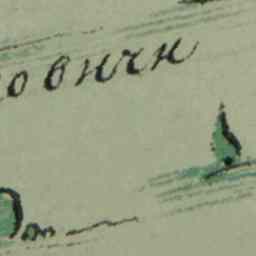 овичи